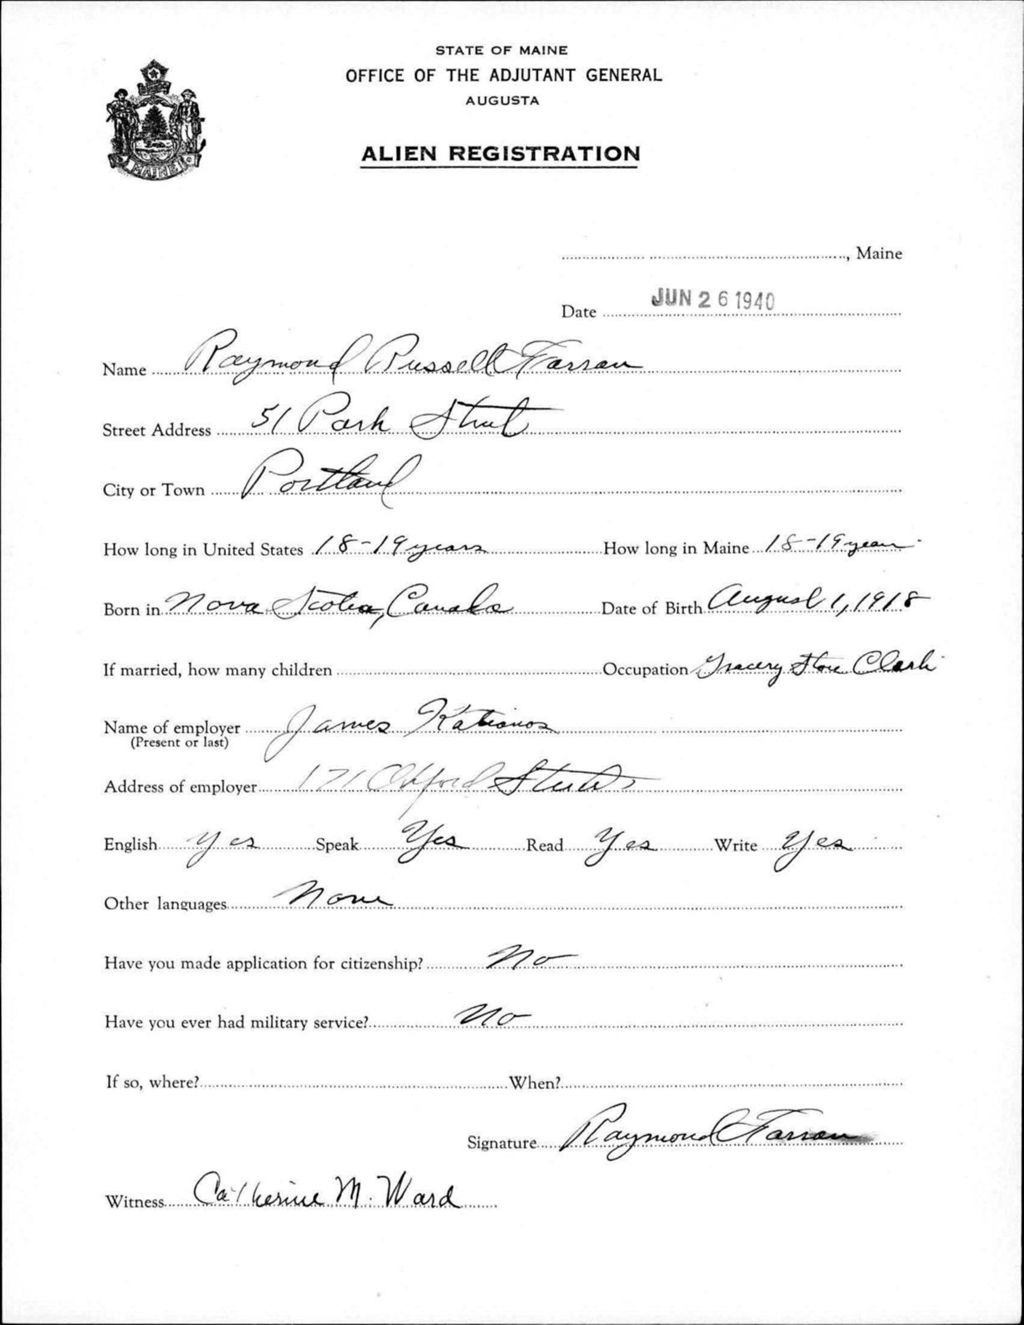 STATE OF MAINE
OFFICE OF THE ADJUTANT GENERAL
AUGUSTA
ALIEN REGISTRATION
MAINE
, Maine
Date JUN 26 1940
Name Raymond Russell Farran
Street Address 51 Park Street
City or Town Portland
How long in United States 18-19 years How long in Maine 18-19 years
Born in Nova Scotia, Canada Date of Birth August 1, 1918
If married, how many children Occupation Grocery Store Clerk
Name of employer James
(Present or last)
Address of employer 171 Oxford Street
English Yes Speak Yes Read Yes Write Yes
Other languages None
Have you made application for citizenship? No
Have you ever had military service? No
If so, where? When?
Signature Raymond Farran
Witness Catherine M. Ward